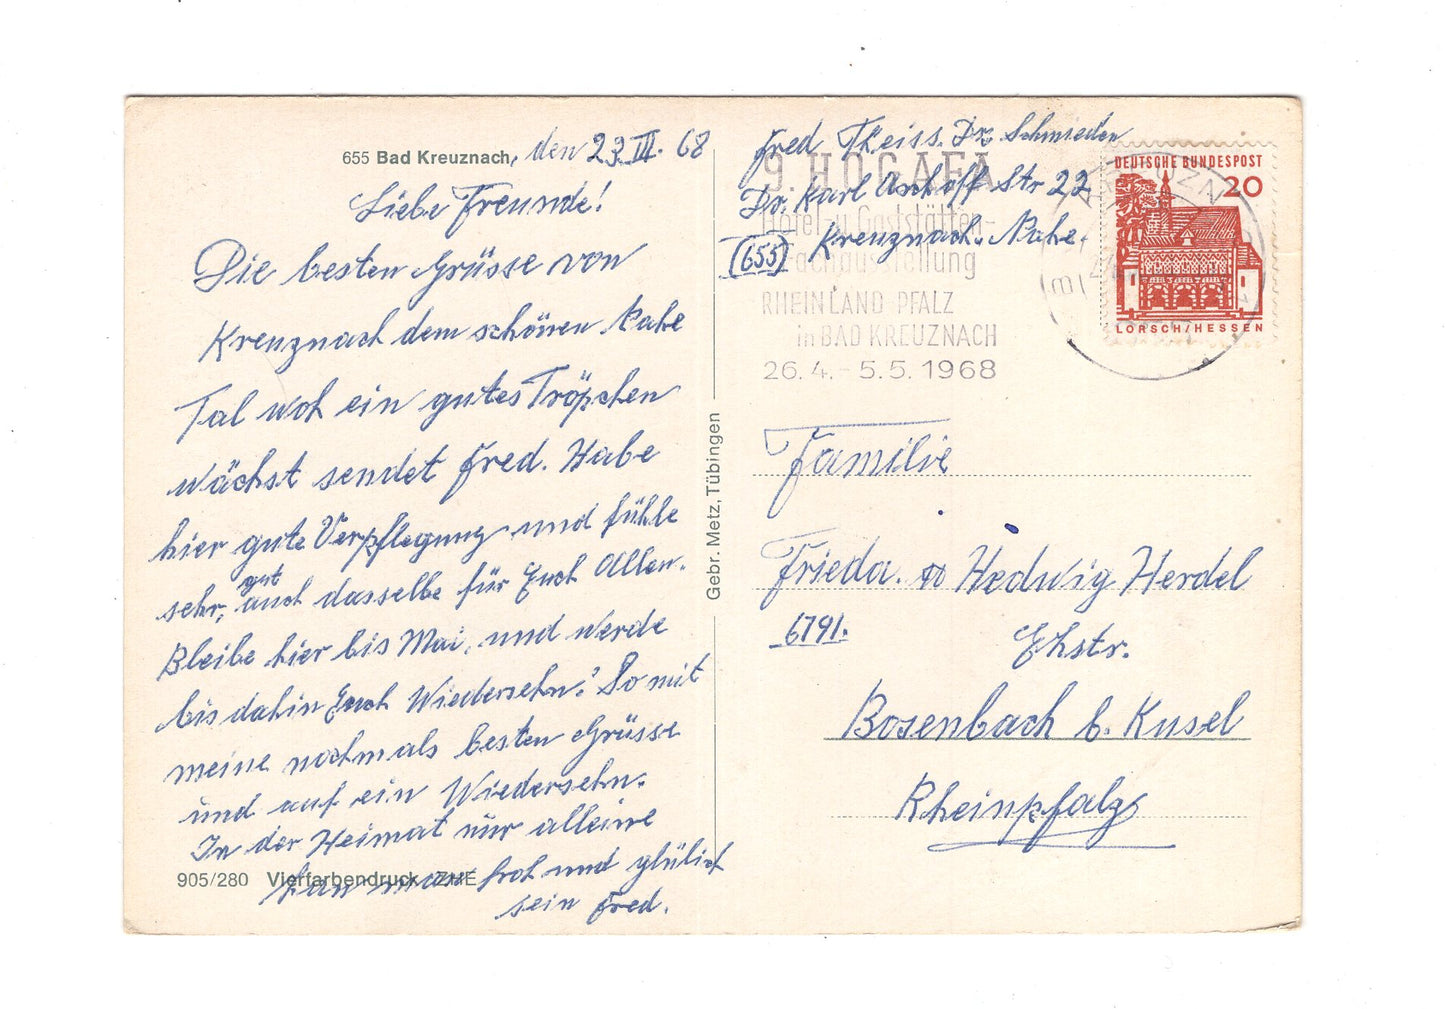 655 Bad Kreuznach, den 23. III. 68
Liebe Freunde!
Die besten Grüsse von
Kreuznach dem schönen Nahe
Tal woh ein gutes Tröpchen
wächst sendet Fred. Habe
hier gute Verpflegung und fühle
sehr, gut auch dasselbe für Euch Allen.
Bleibe hier bis Mai, und werde
bis dahin Euch Wiedersehn. So mit
meine nochmals besten Grüsse
und auf ein Wiedersehn.
In der Heimat nur alleine
kan man froh und glülich
sein Fred.
905/280 Vierfarbendruck ZHE
Gebr. Metz, Tübingen
Fred Theiss. Dr. Schmieden
Dr. Karl Aschoff Str 22
(655) Kreuznach. Nahe.
9. HOGAFA
Hotel- u. Gaststätten-
Fachausstellung
RHEINLAND-PFALZ
in BAD KREUZNACH
26. 4. - 5. 5. 1968
DEUTSCHE BUNDESPOST
20
LORSCH/HESSEN
Familie
Frieda. Hedwig Herdel
6791. Ehstr.
Bosenbach b. Kusel
Rheinpfalz